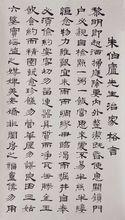 朱伯廬先生治家格言
黎明即起灑掃庭除要內外整潔既昏便息關鎖門
戶必親自檢點一粥一飯當思來處不易半絲半縷
恒念物力維艱宜未雨而綢繆毋臨渴而掘井自奉
必須儉約宴客切勿留連器具質而潔瓦缶勝金玉
飲食約而精園蔬愈珍饈勿營華屋勿謀良田三姑
六婆實淫盜之媒婢美妾嬌非閨房之福童僕勿用